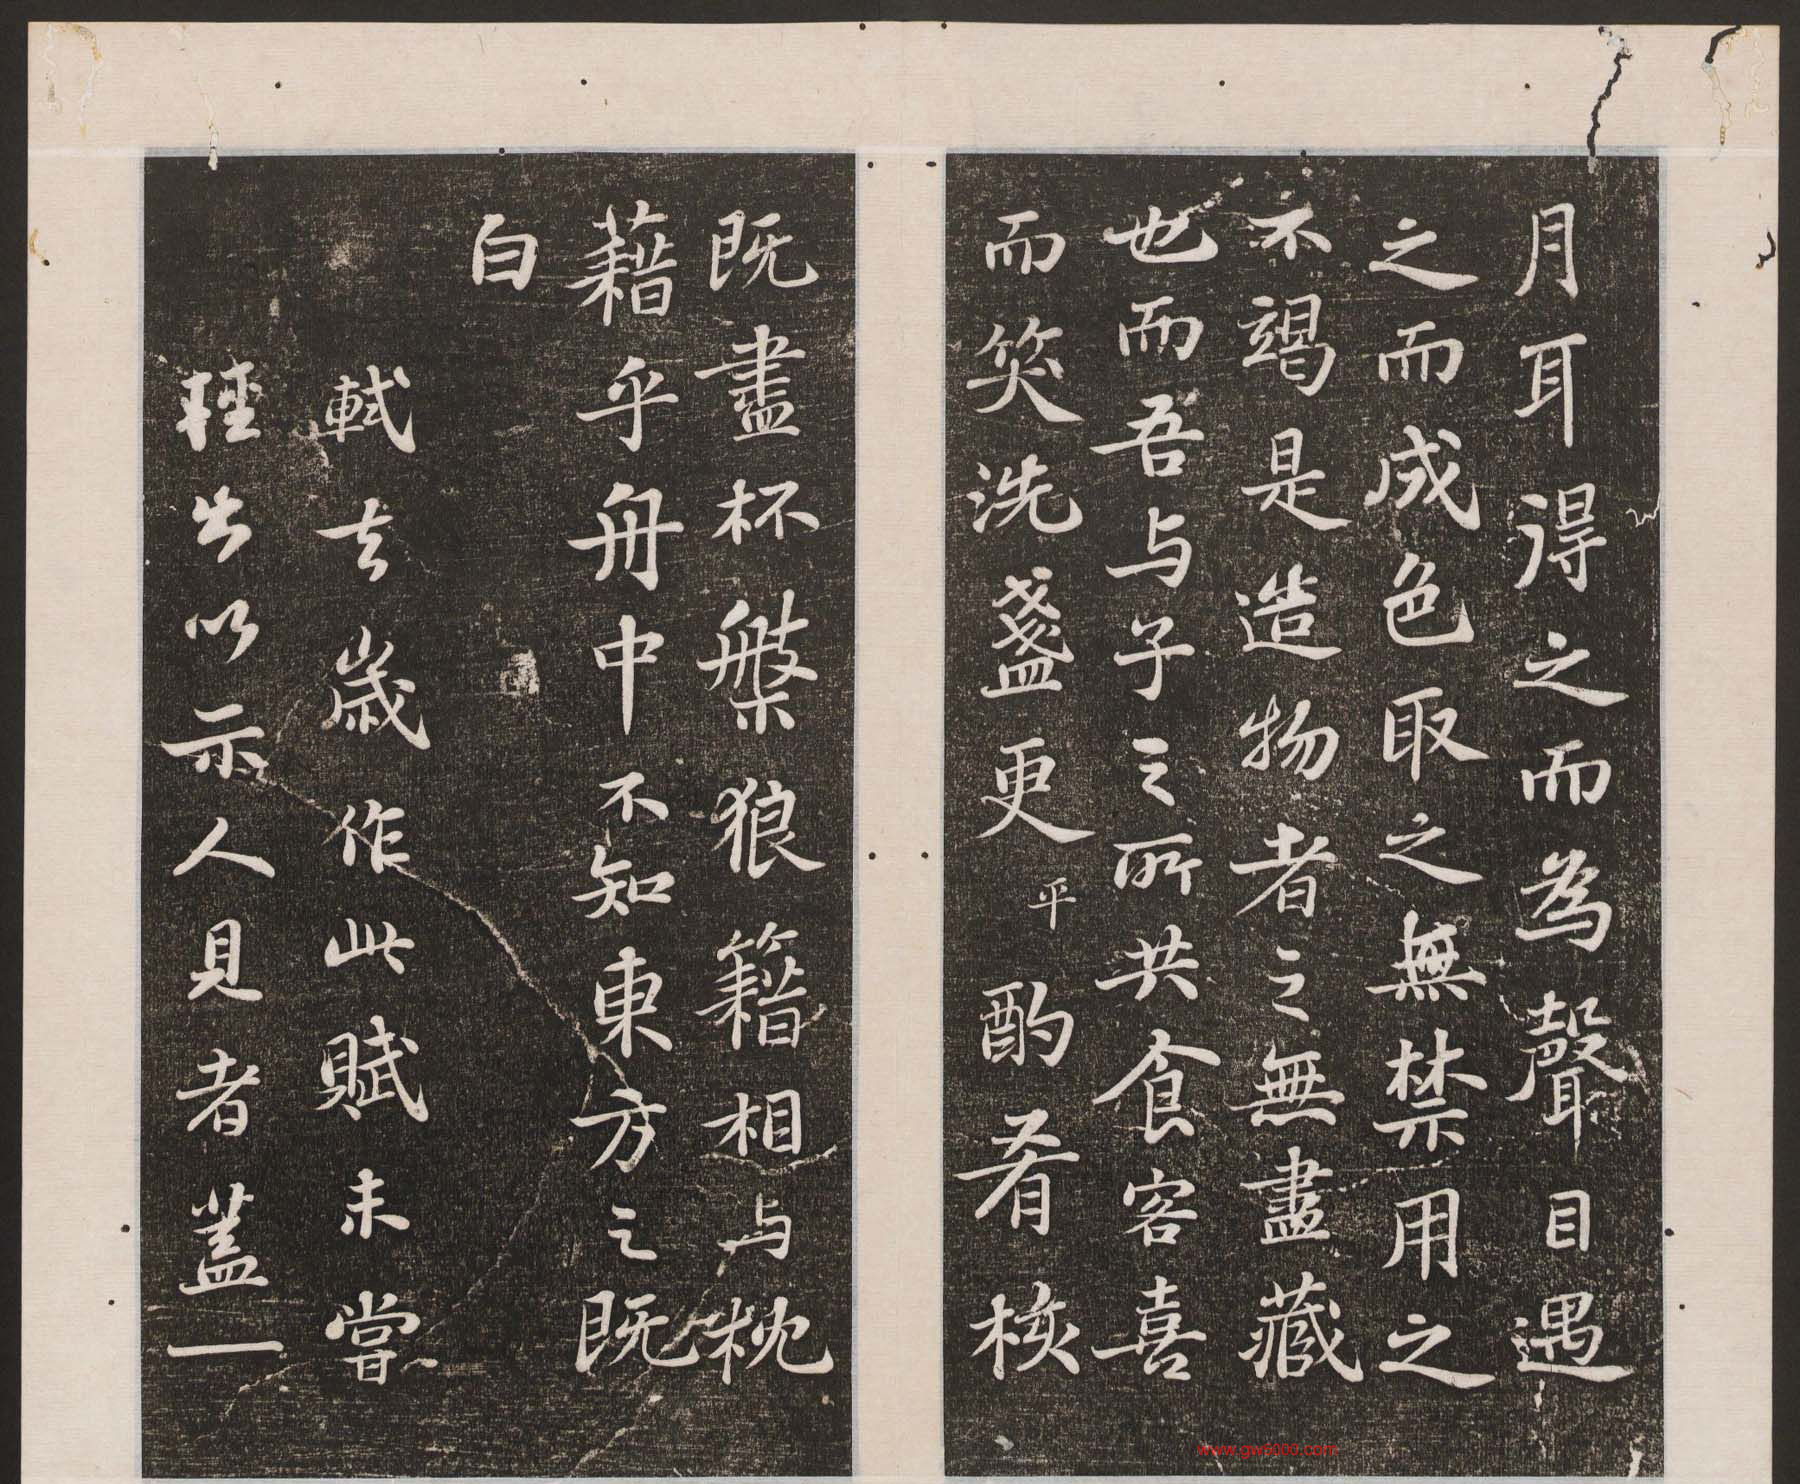 月耳得之而為聲目遇
之而成色取之無禁用之
不竭是造物者之無盡藏
也而吾与子之所共食客喜
而笑洗盞更平酌肴核
既盡杯槃狼籍相与枕
藉乎舟中不知東方之既
白
軾去歲作此賦未嘗
輕出以示人見者蓋一
www.gw5000.com